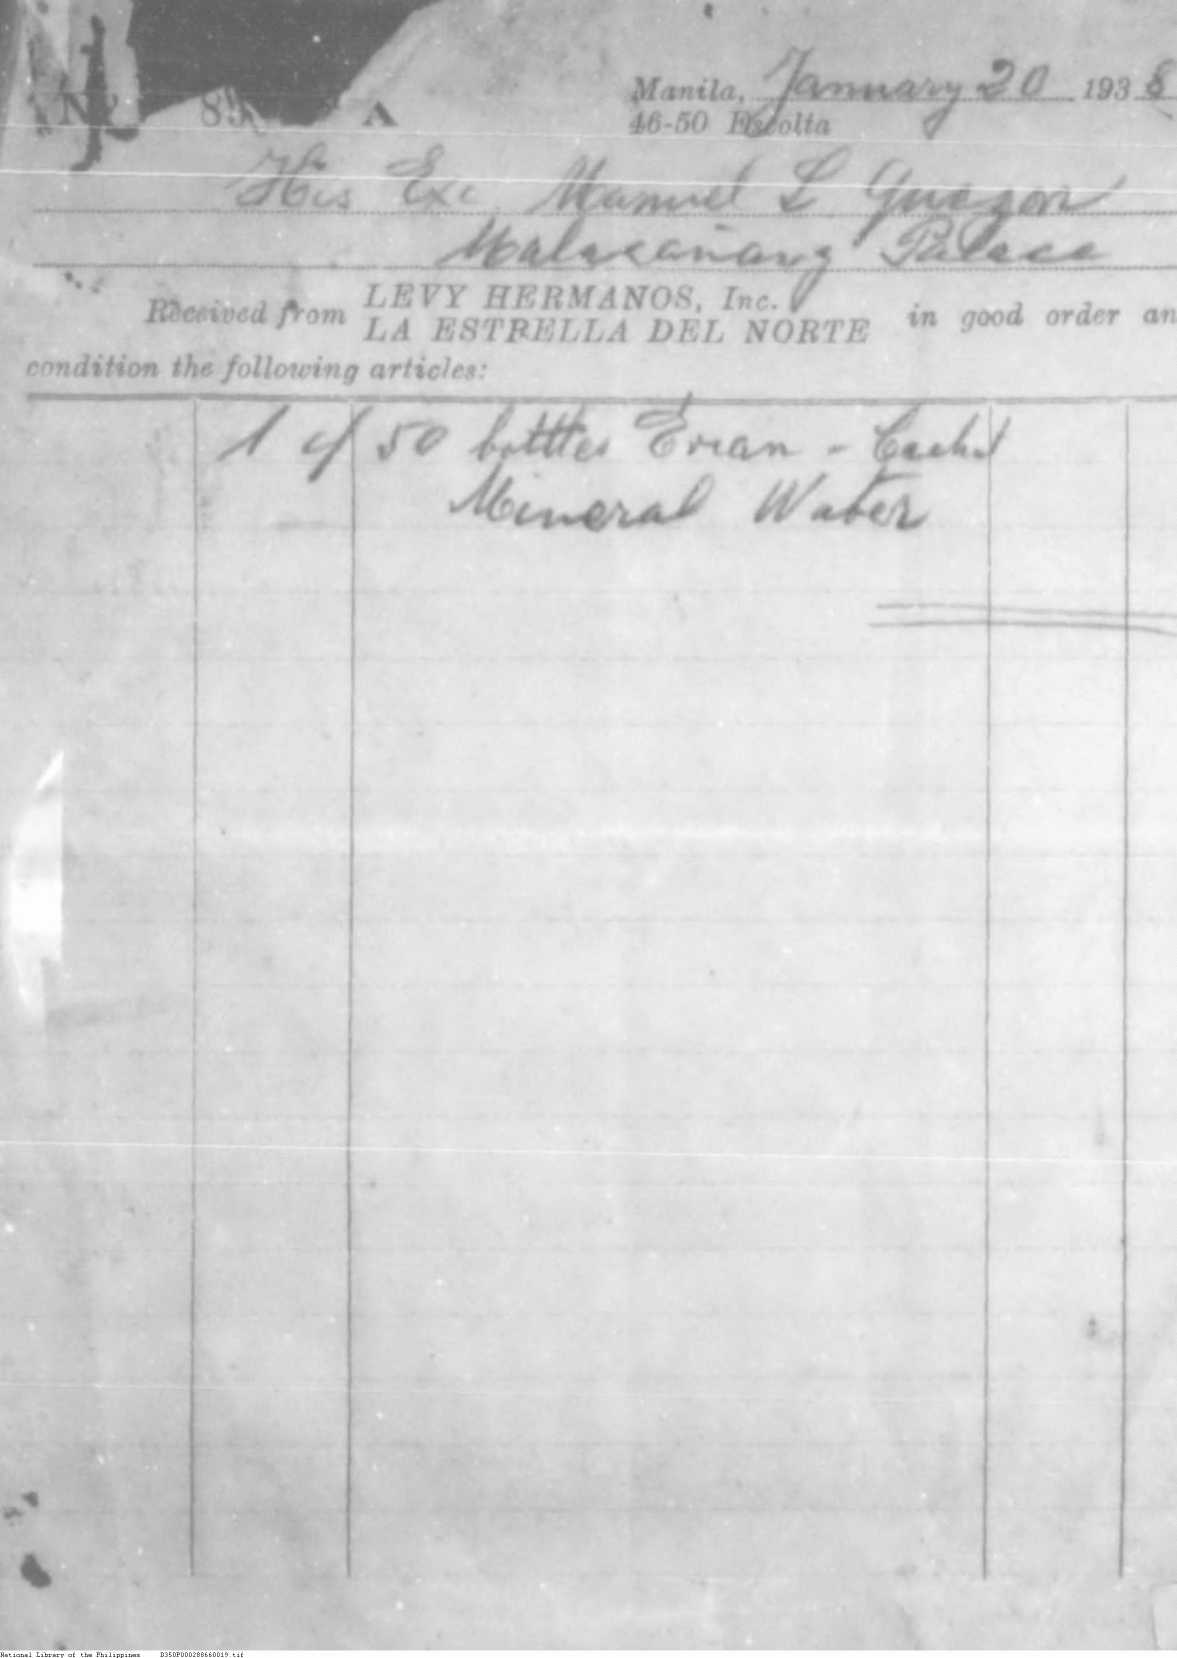 Manila, January 20 1938
No 89 A
46-50 Escolta
His Exc. Manuel L Quezon
Malacañang Palace
Received from LEVY HERMANOS, Inc.
LA ESTRELLA DEL NORTE in good order an
condition the following articles:
1 c/ 50 bottles Evian - Cachat
Mineral Water
National Library of the Philippines D350P000288660019.tif